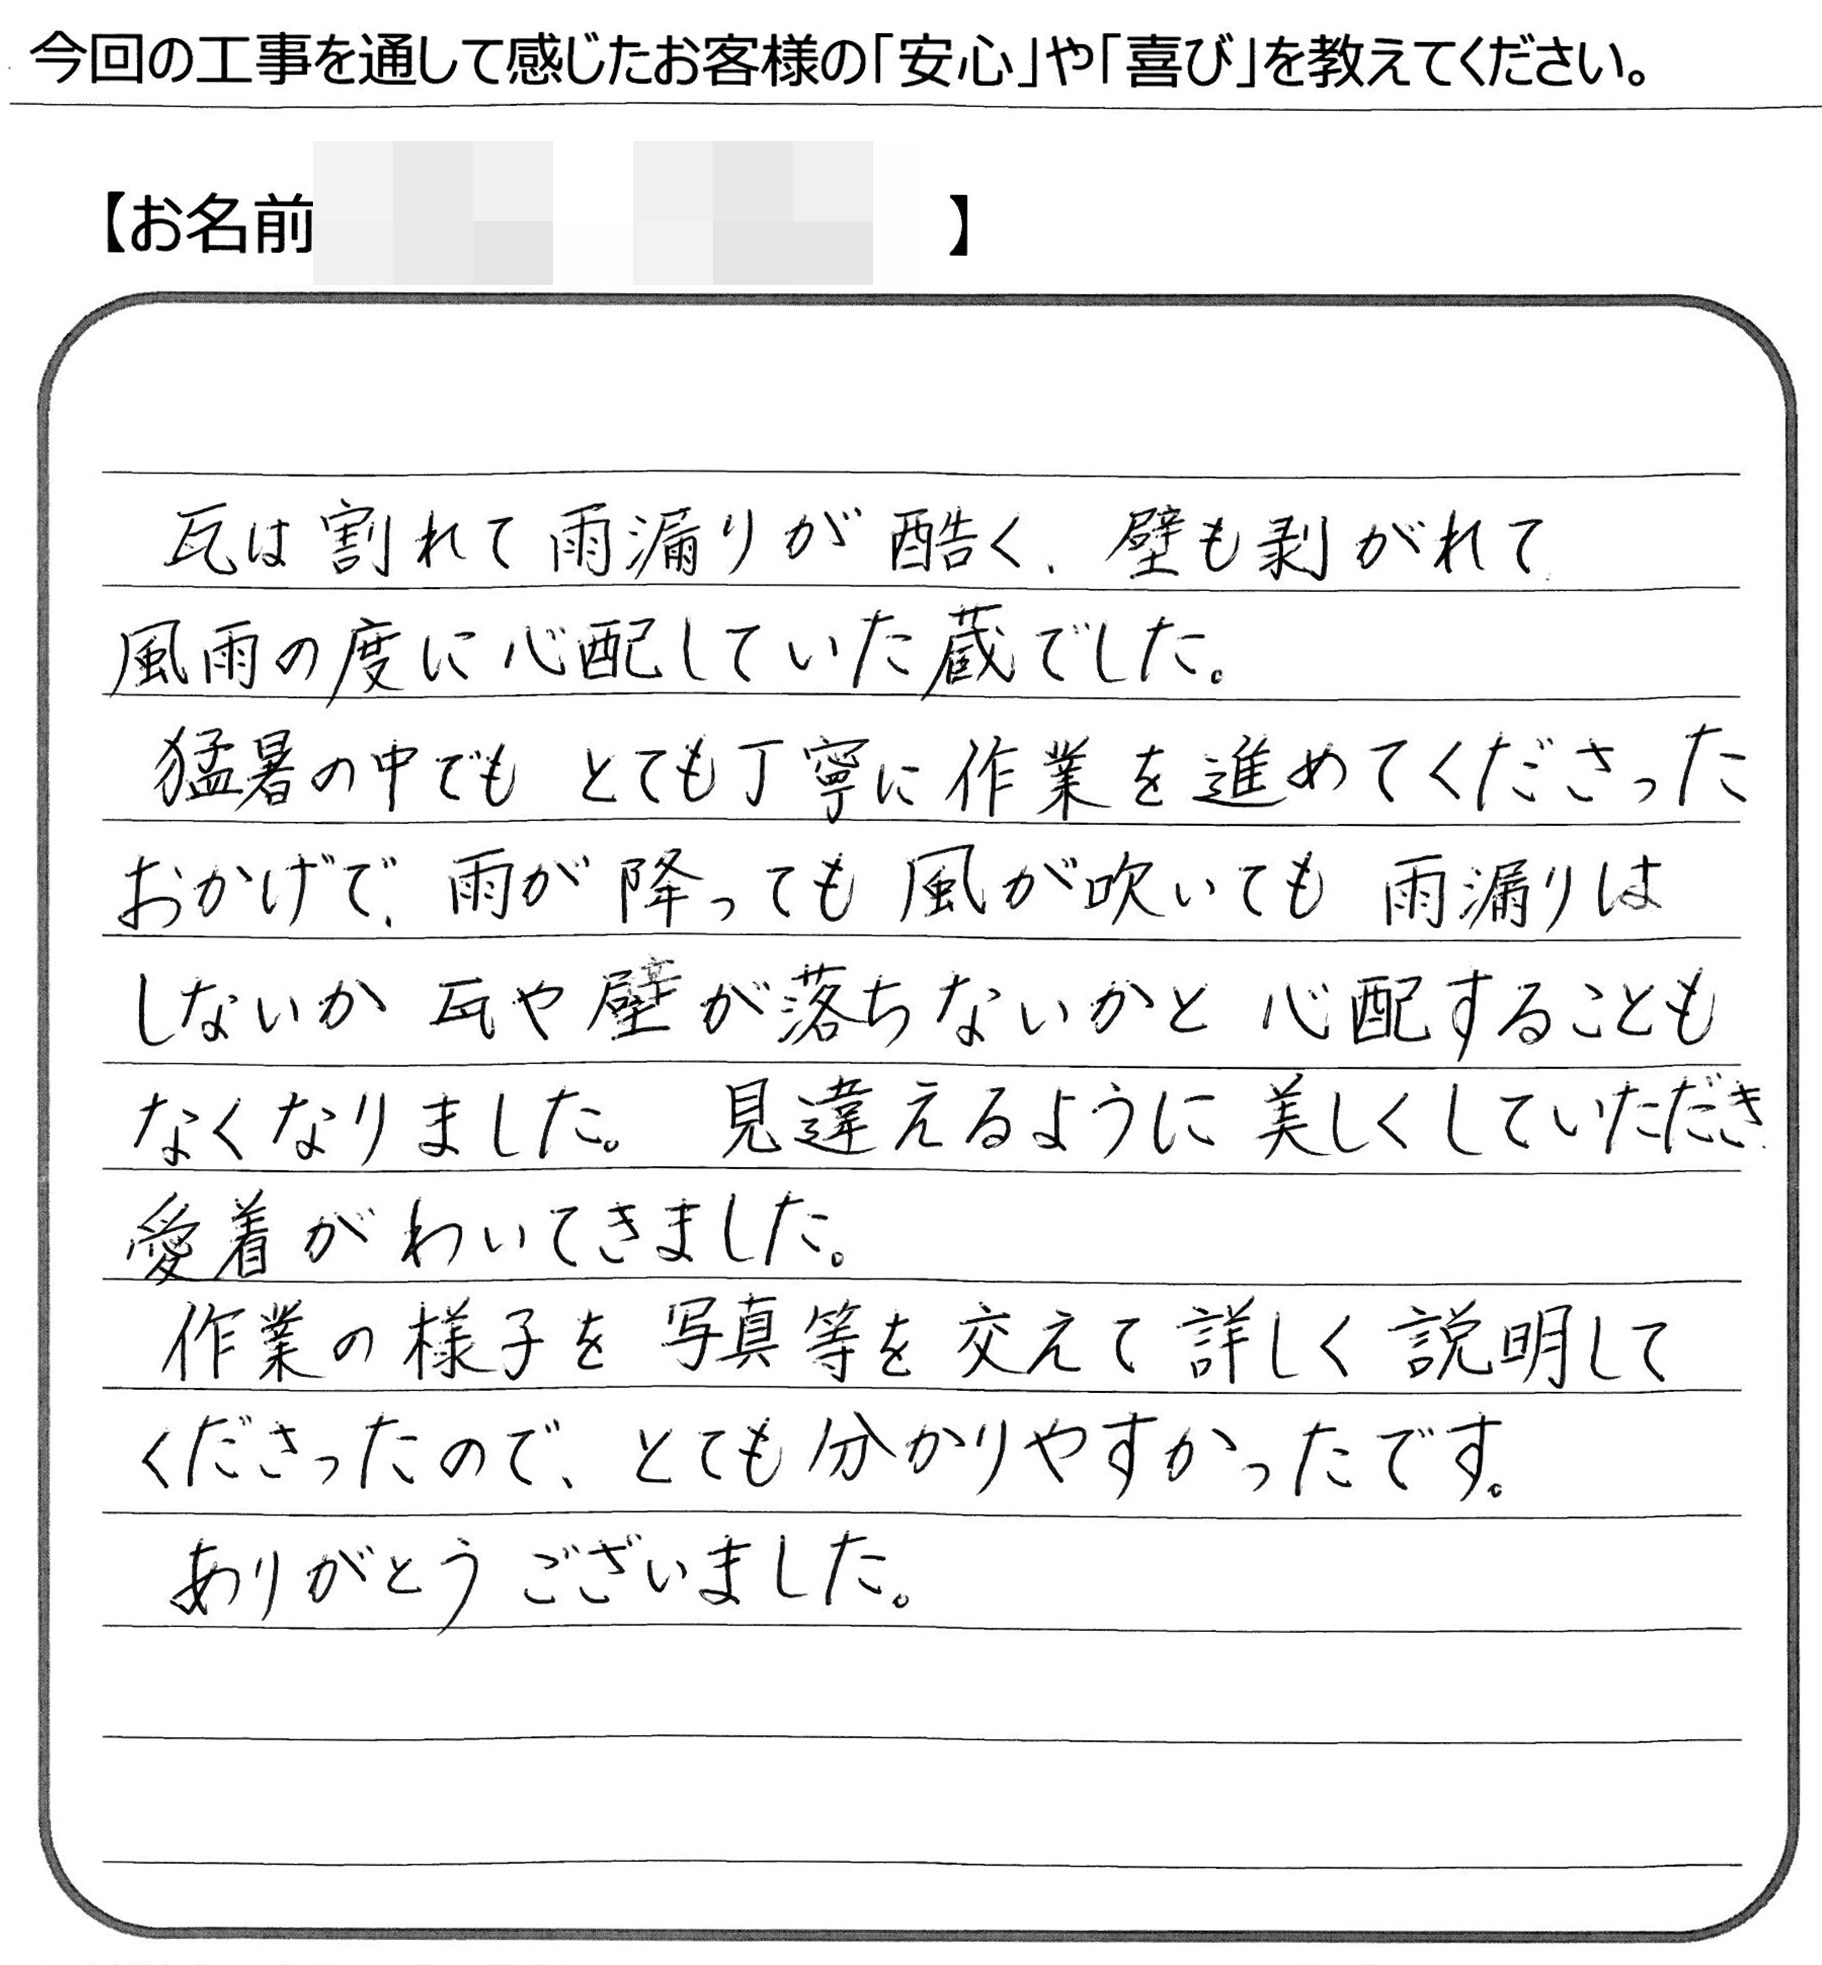 今回の工事を通して感じたお客様の「安心」や「喜び」を教えてください。
【お名前 】
瓦は割れて雨漏りが酷く、壁も剥がれて
風雨の度に心配していた蔵でした。
猛暑の中でも とても丁寧に作業を進めてくださった
おかげで、雨が降っても風が吹いても 雨漏りは
しないか 瓦や壁が落ちないかと 心配することも
なくなりました。 見違えるように美しくしていただき
愛着がわいてきました。
作業の様子を写真等を交えて詳しく説明して
くださったので、とても分かりやすかったです。
ありがとうございました。